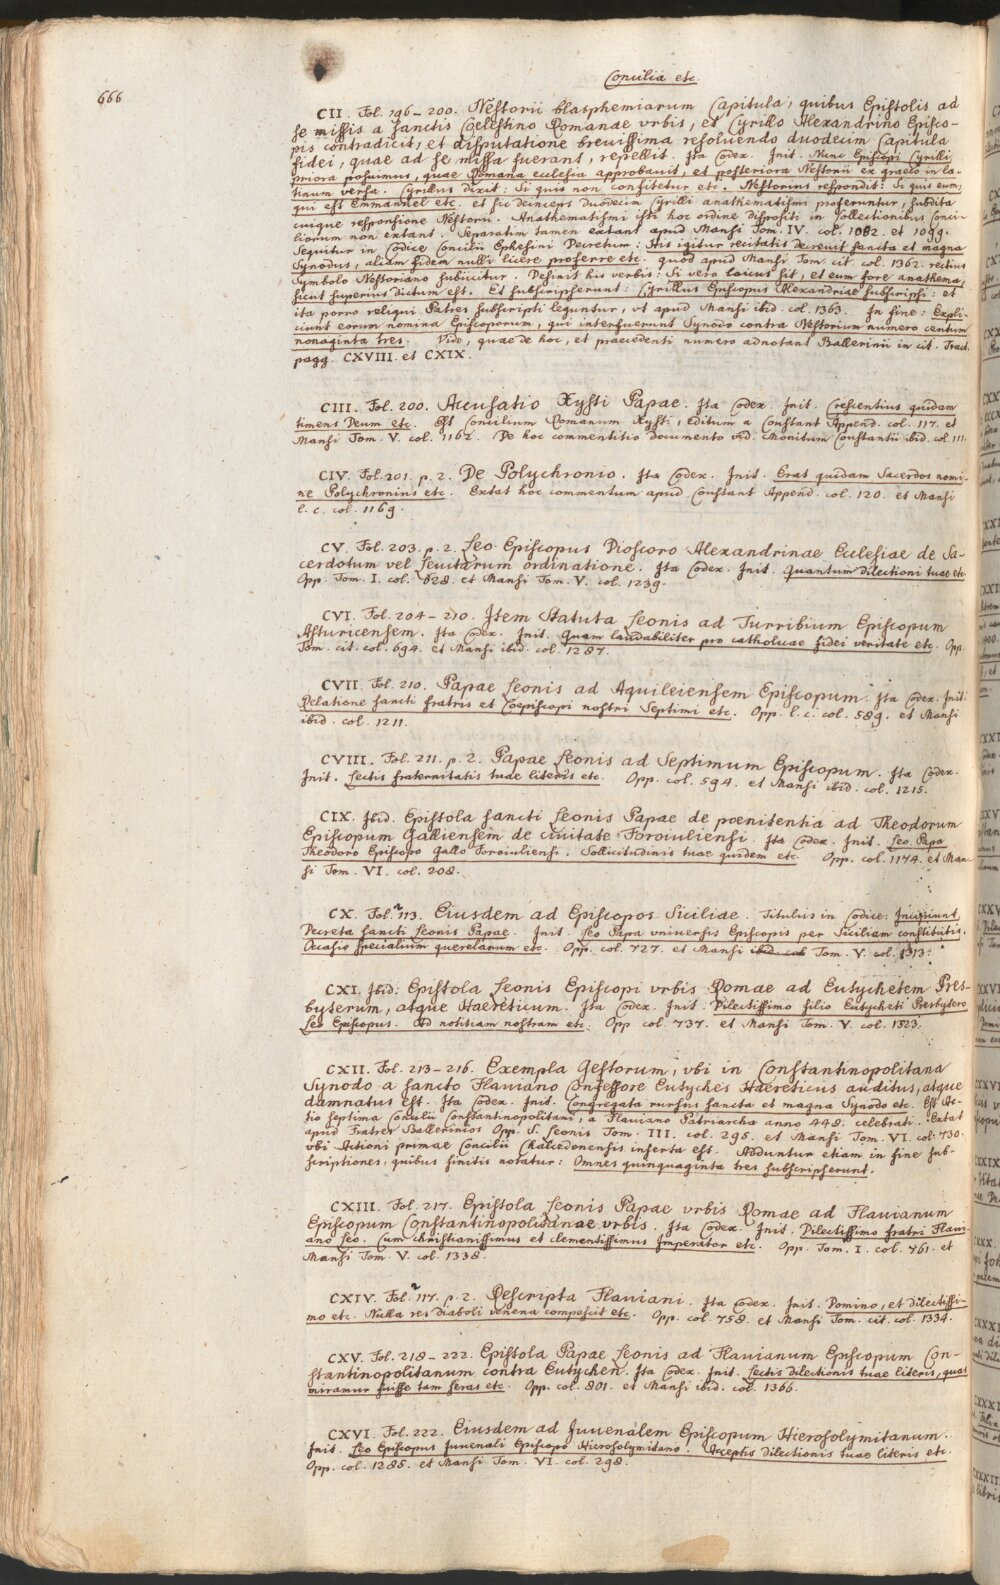 Concilia etc.
666
CII. Fol. 196–200. Nestorii blasphemiarum Capitula, quibus Epistolis ad
se missis a sanctis Coelestino Romanae vrbis, et Cyrillo Alexandrino Episco-
pis contradicit, et disputatione brevissima resoluendo duodecim Capitula
fidei, quae ad se missa fuerant, repellit. Ita Codex. Init. Nunc Episcopi Cyrilli
priora posuimus, quae Romana ecclesia approbauit, et posteriora Nestorii ex graeco in la-
tinum versa. Cyrillus dixit: Si quis non confitetur etc. Nestorius respondit: Si quis eum,
qui est Emmanuel etc. et sic deinceps duodecim Cyrilli anathematismi proferuntur, subdita
cuique responsione Nestorii. Anathematismi isti hoc ordine dispositi in Collectionibus Conci-
liorum non extant. Separatim tamen extant apud Mansi Tom. IV. col. 1082. et 1099.
Sequitur in Codice Concilii Ephesini Decretum: His igitur recitatis decreuit sancta et magna
Synodus, aliam fidem nulli licere proferre etc. quod apud Mansi Tom. cit. col. 1362. rectius
Symbolo Nestoriano subiicitur. Desinit his verbis: Si vero laicus sit, et eum fore anathema,
sicut superius dictum est. Et subscripserunt: Cyrillus Episcopus Alexandriae subscripsi: et
ita porro reliqui Patres subscripti leguntur, vt apud Mansi ibid. col. 1363. In fine: Expli-
ciunt eorum nomina Episcoporum, qui interfuerunt Synodo contra Nestorium numero centum
nonaginta tres. Vide, quae de hoc, et praecedenti numero adnotant Ballerinii in cit. Tract.
pagg. CXVIII. et CXIX.
CIII. Fol. 200. Accusatio Xysti Papae. Ita Codex. Init. Crescentius quidam
timens Deum etc. Est Concilium Romanum Xysti, editum a Constant Append. col. 117. et
Mansi Tom. V. col. 1162. De hoc commentitio documento vid. Monitum Constantii ibid. col. 111.
CIV. Fol. 201. p. 2. De Polychronio. Ita Codex. Init. Erat quidam Sacerdos nomi-
ne Polychronius etc. Extat hoc commentum apud Constant Append. col. 120. et Mansi
l. c. col. 1169.
CV. Fol. 203. p. 2. Leo Episcopus Dioscoro Alexandrinae Ecclesiae de Sa-
cerdotum vel Leuitarum ordinatione. Ita Codex. Init. Quantum dilectioni tuae etc.
Opp. Tom. I. col. 628. et Mansi Tom. V. col. 1239.
CVI. Fol. 204–210. Item Statuta Leonis ad Turribium Episcopum
Asturicensem. Ita Codex. Init. Quam laudabiliter pro catholicae fidei veritate etc. Opp.
Tom. cit. col. 694. et Mansi ibid. col. 1287.
CVII. Fol. 210. Papae Leonis ad Aquileiensem Episcopum. Ita Codex. Init.
Relatione sancti fratris et Coepiscopi nostri Septimi etc. Opp. l. c. col. 589. et Mansi
ibid. col. 1211.
CVIII. Fol. 211. p. 2. Papae Leonis ad Septimum Episcopum. Ita Codex.
Init. Lectis fraternitatis tuae literis etc. Opp. col. 594. et Mansi ibid. col. 1215.
CIX. Ibid. Epistola sancti Leonis Papae de poenitentia ad Theodorum
Episcopum Galliensem de ciuitate Foroiuliensi. Ita Codex. Init. Leo Papa
Theodoro Episcopo Gallo Foroiuliensi. Sollicitudinis tuae quidem etc. Opp. col. 1174. et Man-
si Tom. VI. col. 208.
CX. Fol. 2113. Eiusdem ad Episcopos Siciliae. Titulus in Codice: Incipiunt
Decreta sancti Leonis Papae. Init. Leo Papa vniuersis Episcopis per Siciliam constitutis.
Occasio specialium querelarum etc. Opp. col. 727. et Mansi Tom. V. col. 1313.
CXI. Ibid. Epistola Leonis Episcopi vrbis Romae ad Eutychetem Pres-
byterum, atque Haereticum. Ita Codex. Init. Dilectissimo filio Eutycheti Presbytero
Leo Episcopus. Ad notitiam nostram etc. Opp. col. 737. et Mansi Tom. V. col. 1323.
CXII. Fol. 213–216. Exempla Gestorum, vbi in Constantinopolitana
Synodo a sancto Flauiano Confessore Eutyches Haereticus auditus, atque
damnatus est. Ita Codex. Init. Congregata rursus sancta et magna Synodo etc. Est Ac-
tio septima Concilii Constantinopolitani, a Flauiano Patriarcha anno 448. celebrati. Extat
apud Fratres Ballerinios Opp. S. Leonis Tom. III. col. 295. et Mansi Tom. VI. col. 730.
vbi Actioni primae Concilii Chalcedonensis inserta est. Adduntur etiam in fine sub-
scriptiones, quibus finitis notatur: Omnes quinquaginta tres subscripserunt.
CXIII. Fol. 217. Epistola Leonis Papae vrbis Romae ad Flauianum
Episcopum Constantinopolitanae vrbis. Ita Codex. Init. Dilectissimo fratri Flaui-
ano Leo. Cum christianissimus et clementissimus Imperator etc. Opp. Tom. I. col. 761. et
Mansi Tom. V. col. 1338.
CXIV. Fol. 2117. p. 2. Rescripta Flauiani. Ita Codex. Init. Domino, et dilectissi-
mo etc. Nulla res diaboli venena compescit etc. Opp. col. 758. et Mansi Tom. cit. col. 1334.
CXV. Fol. 218–222. Epistola Papae Leonis ad Flauianum Episcopum Con-
stantinopolitanum contra Eutychen. Ita Codex. Init. Lectis dilectionis tuae literis, quas
miramur fuisse tam seras etc. Opp. col. 801. et Mansi ibid. col. 1366.
CXVI. Fol. 222. Eiusdem ad Iuuenalem Episcopum Hierosolymitanum.
Init. Leo Episcopus Iuuenali Episcopo Hierosolymitano. Acceptis dilectionis tuae literis etc.
Opp. col. 1285. et Mansi Tom. VI. col. 298.